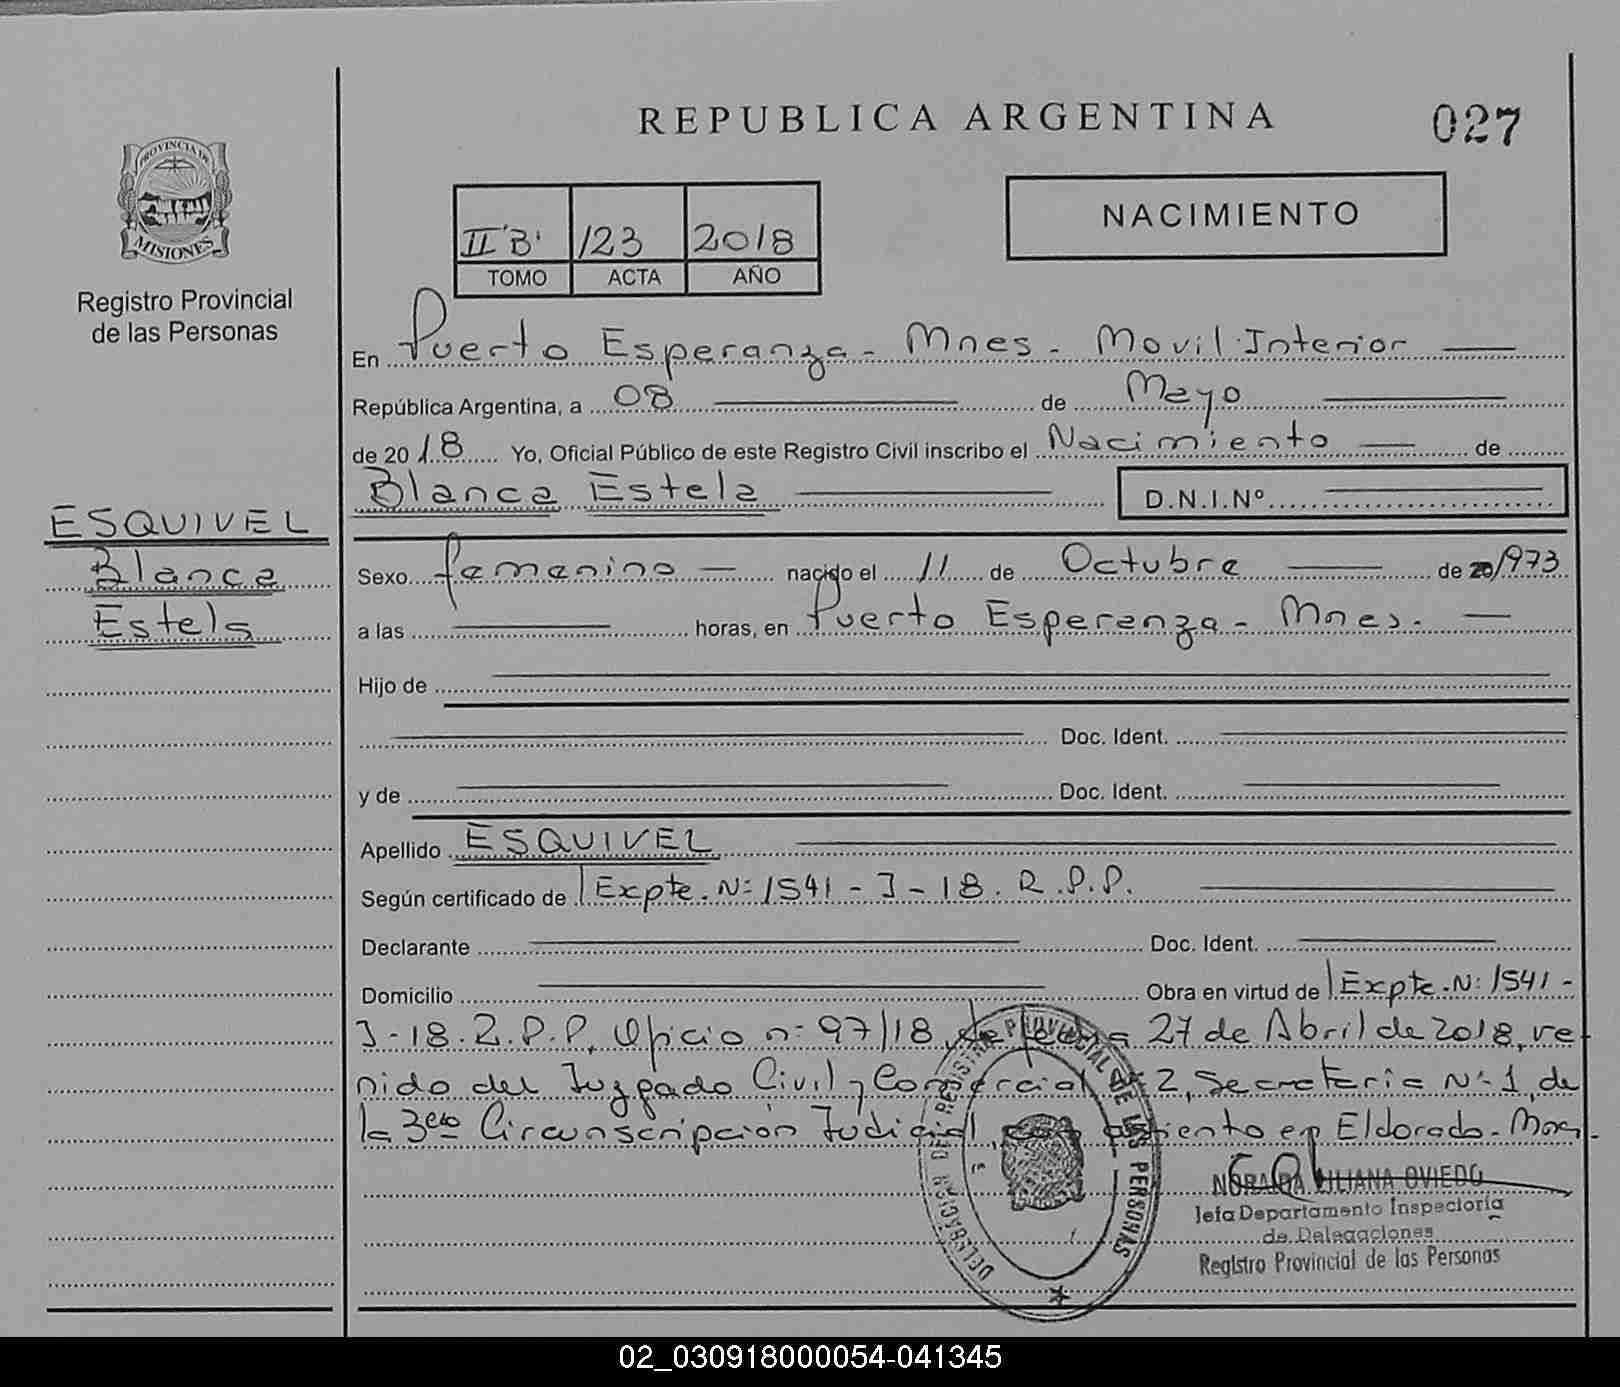 REPUBLICA ARGENTINA
027
PROVINCIA DE
MISIONES
Registro Provincial
de las Personas
II "B" 123 2018
TOMO ACTA AÑO
NACIMIENTO
En Puerto Esperanza - Mnes - Movil Interior
República Argentina, a 08 de Mayo
de 2018 Yo, Oficial Público de este Registro Civil inscribo el Nacimiento de
Blanca Estela D.N.I.Nº
ESQUIVEL
Blanca
Estela
Sexo femenino nacido el 11 de Octubre de 20 1973
a las horas, en Puerto Esperanza - Mnes.
Hijo de
Doc. Ident.
y de Doc. Ident.
Apellido ESQUIVEL
Según certificado de Expte. Nº 1541 - J - 18. R.P.P.
Declarante Doc. Ident.
Domicilio Obra en virtud de Expte. Nº 1541 -
J - 18. R.P.P. Oficio nº 97/18 de fecha 27 de Abril de 2018, ve-
nido del Juzgado Civil y Comercial Nº 2, Secretaria Nº 1, de
la 3era Circunscripción Judicial, con asiento en Eldorado - Mnes.
DELEGACION DEL REGISTRO PROVINCIAL DE LAS PERSONAS
LILIANA OVIEDO
Jefa Departamento Inspectoría
de Delegaciones
Registro Provincial de las Personas
02_030918000054-041345